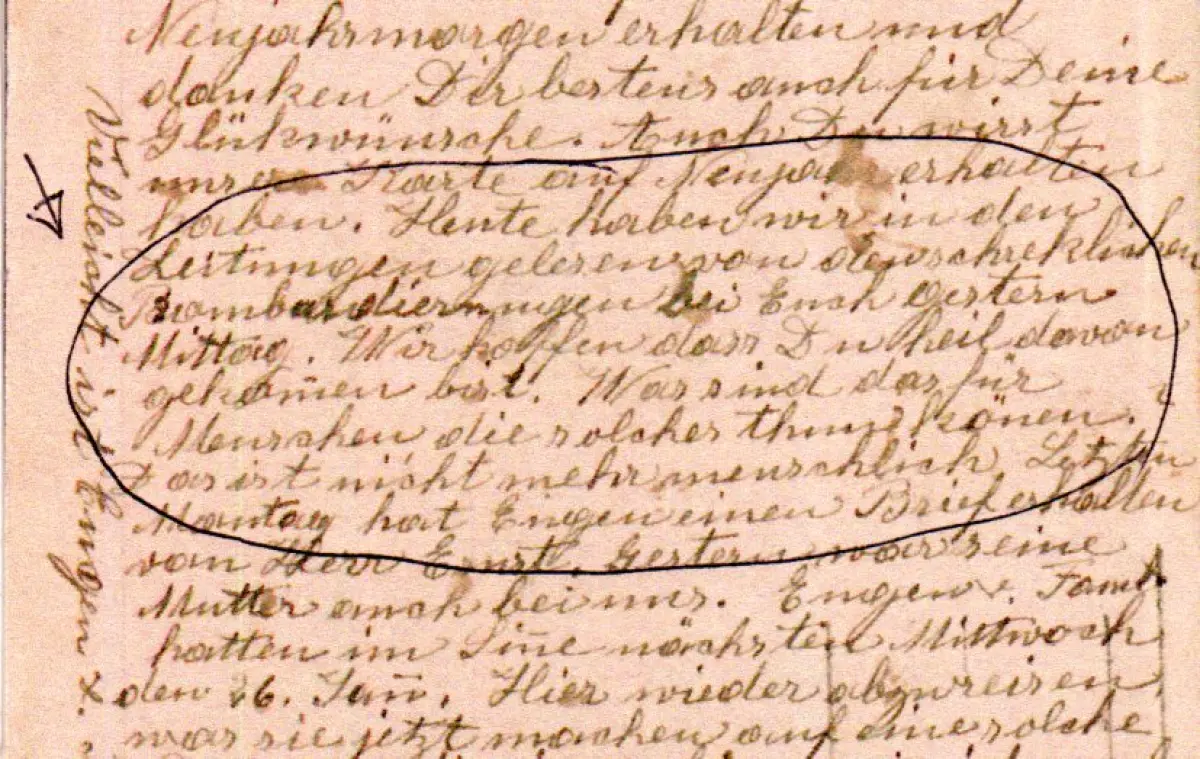 Neujahrmorgen erhalten und
danken Dir bestens auch für Deine
Glükwünsche. Auch Du wirst
unsere Karte auf Neujahr erhalten
haben. Heute haben wir in den
Zeitungen gelesen von den schreklichen
Bombardierungen bei Euch gestern
Mittag. Wir hoffen dass Du heil davon
gekom̄en bist. Was sind das für
Menschen die solches thun könen.
Das ist nicht mehr menschlich. Letzten
Montag hat Eugen einen Brief erhalten
von Herr Ernst. Gestern war seine
Mutter auch bei uns. Eugen u. Famil
hatten im Sin̄e nächsten Mittwoch
den 26. Jan̄. Hier wieder abzureisen
was sie jetzt machen auf eine solche
Villeicht ist Eugen